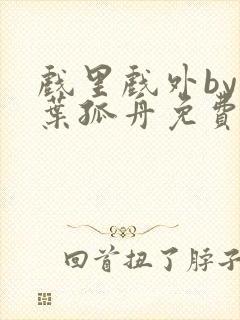 戲里戲外by
葉孤舟免費
回首扭了脖子